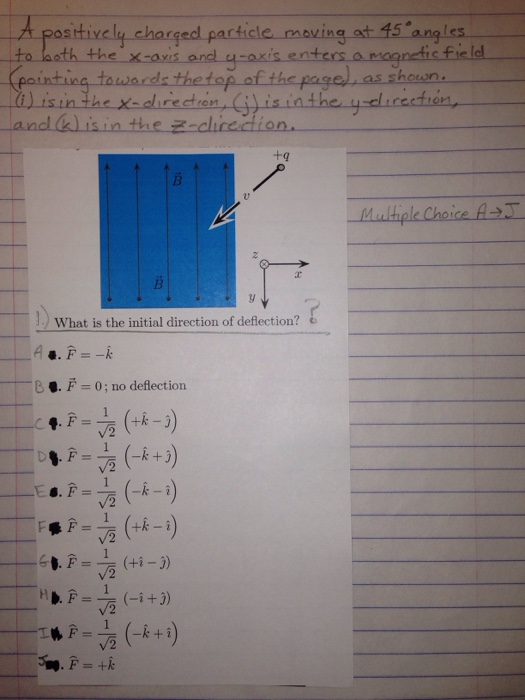 A positively charged particle moving at 45° angles
to both the x-axis and y-axis enters a magnetic field
(pointing towards the top of the page), as shown.
(i) is in the x-direction, (j) is in the y-direction,
and (k) is in the z-direction.
+q
B⃗
v
Multiple Choice A→J
z
x
B⃗
y
1.) What is the initial direction of deflection? ?
A. F̂ = −k̂
B. F⃗ = 0; no deflection
C. F̂ = 1/√2 (+k̂ − ĵ)
D. F̂ = 1/√2 (−k̂ + ĵ)
E. F̂ = 1/√2 (−k̂ − î)
F. F̂ = 1/√2 (+k̂ − î)
G. F̂ = 1/√2 (+î − ĵ)
H. F̂ = 1/√2 (−î + ĵ)
I. F̂ = 1/√2 (−k̂ + î)
J. F̂ = +k̂